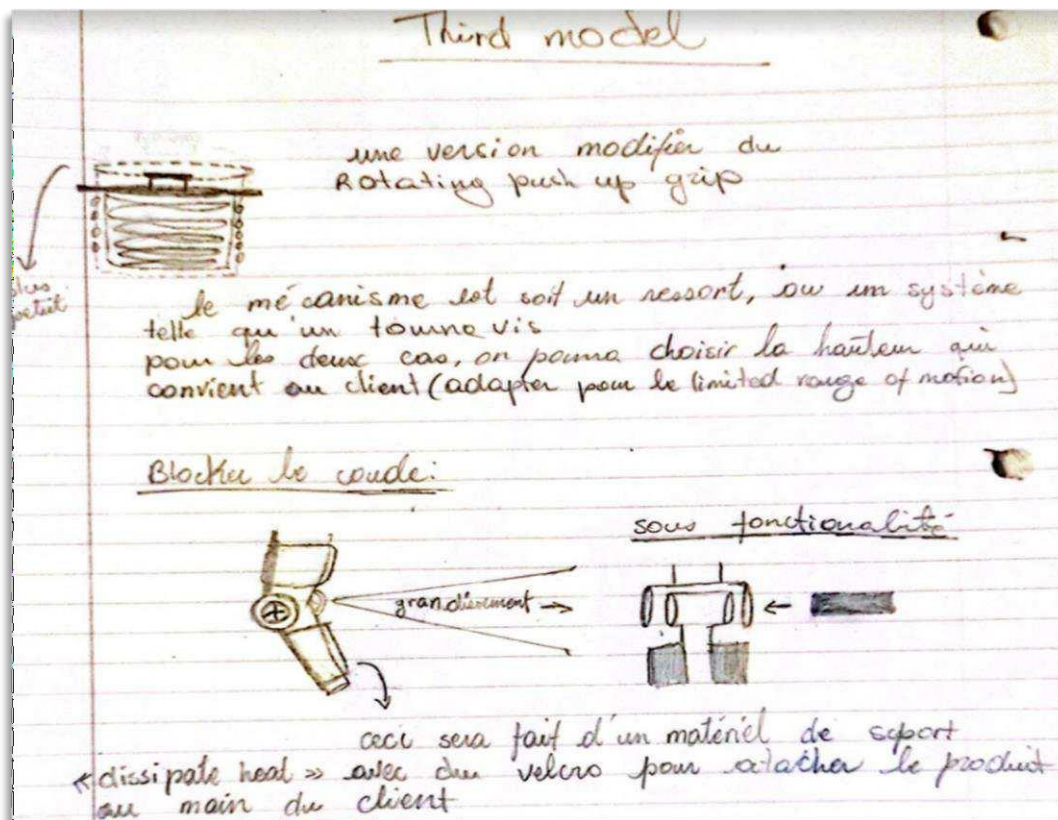 Third model
une version modifier du
Rotating push up grip
plus
petit
le mécanisme est soit un ressort, ou un système
telle qu'un tourne vis
pour les deux cas, on pourra choisir la hauteur qui
convient au client (adapter pour le limited range of motion)
Blocker le coude:
sous fonctionalité
grandissement
ceci sera fait d'un matériel de suport
« dissipate heat » avec du velcro pour atacher le produit
au main du client